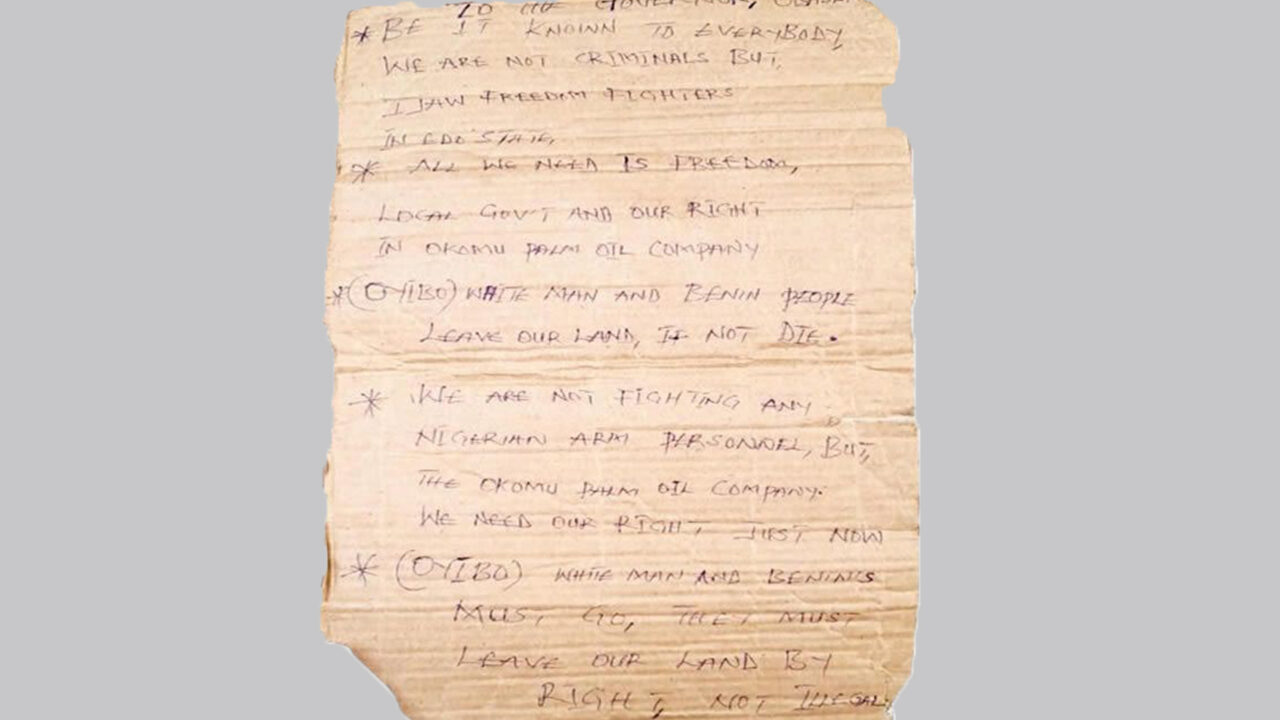 TO THE GOVERNOR,
* BE IT KNOWN TO EVERYBODY,
WE ARE NOT CRIMINALS BUT,
IJAW FREEDOM FIGHTERS
IN EDO STATE,
* ALL WE NEED IS FREEDOM,
LOCAL GOV'T AND OUR RIGHT
IN OKOMU PALM OIL COMPANY
* (OYIBO) WHITE MAN AND BENIN PEOPLE
LEAVE OUR LAND, IF NOT DIE.
* WE ARE NOT FIGHTING ANY
NIGERIAN ARM PERSONNEL, BUT,
THE OKOMU PALM OIL COMPANY.
WE NEED OUR RIGHT JUST NOW
* (OYIBO) WHITE MAN AND BENINS
MUST GO, THEY MUST
LEAVE OUR LAND BY
RIGHT, NOT ILLEGAL